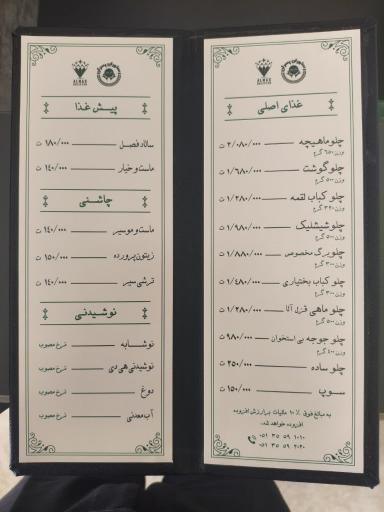 غذای اصلی
چلو ماهیچه ۲/۰۸۰/۰۰۰ ت
وزن ۶۵۰ گرم
چلو گوشت ۱/۶۸۰/۰۰۰ ت
وزن ۵۰۰ گرم
چلو کباب لقمه ۱/۲۸۰/۰۰۰ ت
وزن ۳۲۰ گرم
چلو شیشلیک ۱/۹۸۰/۰۰۰ ت
وزن ۵۰۰ گرم
چلو برگ مخصوص ۱/۸۸۰/۰۰۰ ت
وزن ۳۰۰ گرم
چلو کباب بختیاری ۱/۴۸۰/۰۰۰ ت
وزن ۳۰۰ گرم
چلو ماهی قزل آلا ۱/۲۸۰/۰۰۰ ت
وزن ۵۰۰ گرم
چلو جوجه بی استخوان ۹۸۰/۰۰۰ ت
وزن ۴۰۰ گرم
چلو ساده ۲۵۰/۰۰۰ ت
سوپ ۱۵۰/۰۰۰ ت
به مبالغ فوق ۱۰٪ مالیات بر ارزش افزوده
افزوده خواهد شد.
۰۵۱ ۳۵ ۵۹ ۱۰۱۰
۰۵۱ ۳۵ ۵۹ ۲۰۲۰
پیش غذا
سالاد فصل ۱۸۰/۰۰۰ ت
ماست و خیار ۱۴۰/۰۰۰ ت
چاشنی
ماست و موسیر ۱۴۰/۰۰۰ ت
زیتون پرورده ۱۵۰/۰۰۰ ت
ترشی سیر ۱۴۰/۰۰۰ ت
نوشیدنی
نوشابه نرخ مصوب
نوشیدنی هی دی نرخ مصوب
دوغ نرخ مصوب
آب معدنی نرخ مصوب